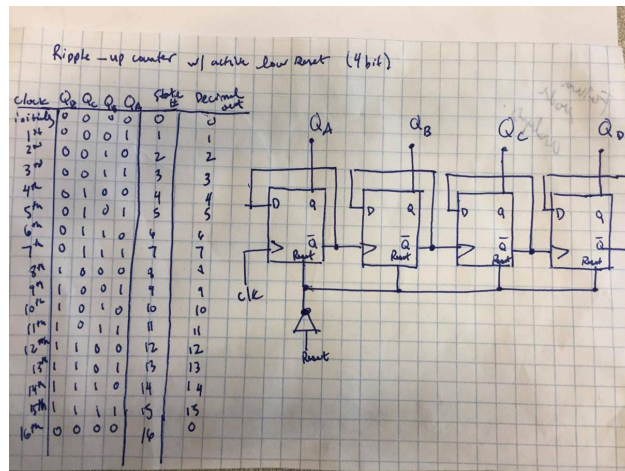 Ripple-up counter w/ active low Reset (4 bit)
clock QD QC QB QA State # Decimal out
initially 0 0 0 0 0 0
1st 0 0 0 1 1 1
2nd 0 0 1 0 2 2
3rd 0 0 1 1 3 3
4th 0 1 0 0 4 4
5th 0 1 0 1 5 5
6th 0 1 1 0 6 6
7th 0 1 1 1 7 7
8th 1 0 0 0 8 8
9th 1 0 0 1 9 9
10th 1 0 1 0 10 10
11th 1 0 1 1 11 11
12th 1 1 0 0 12 12
13th 1 1 0 1 13 13
14th 1 1 1 0 14 14
15th 1 1 1 1 15 15
16th 0 0 0 0 16 0
QA QB QC QD
D Q D Q D Q D Q
Q̅ Q̅ Q̅ Q̅
Reset Reset Reset Reset
clk
Reset